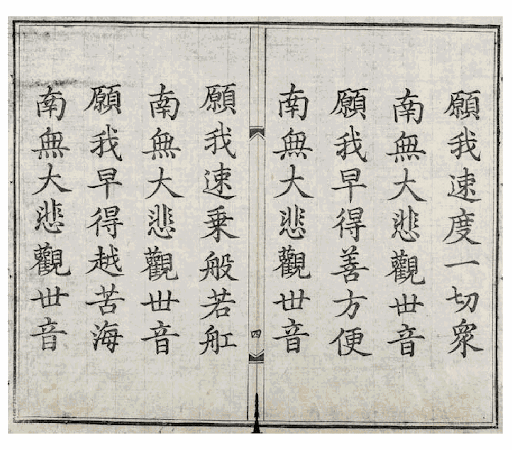 願我速度一切衆
南無大悲觀世音
願我早得善方便
南無大悲觀世音
四
願我速乗般若舡
南無大悲觀世音
願我早得越苦海
南無大悲觀世音